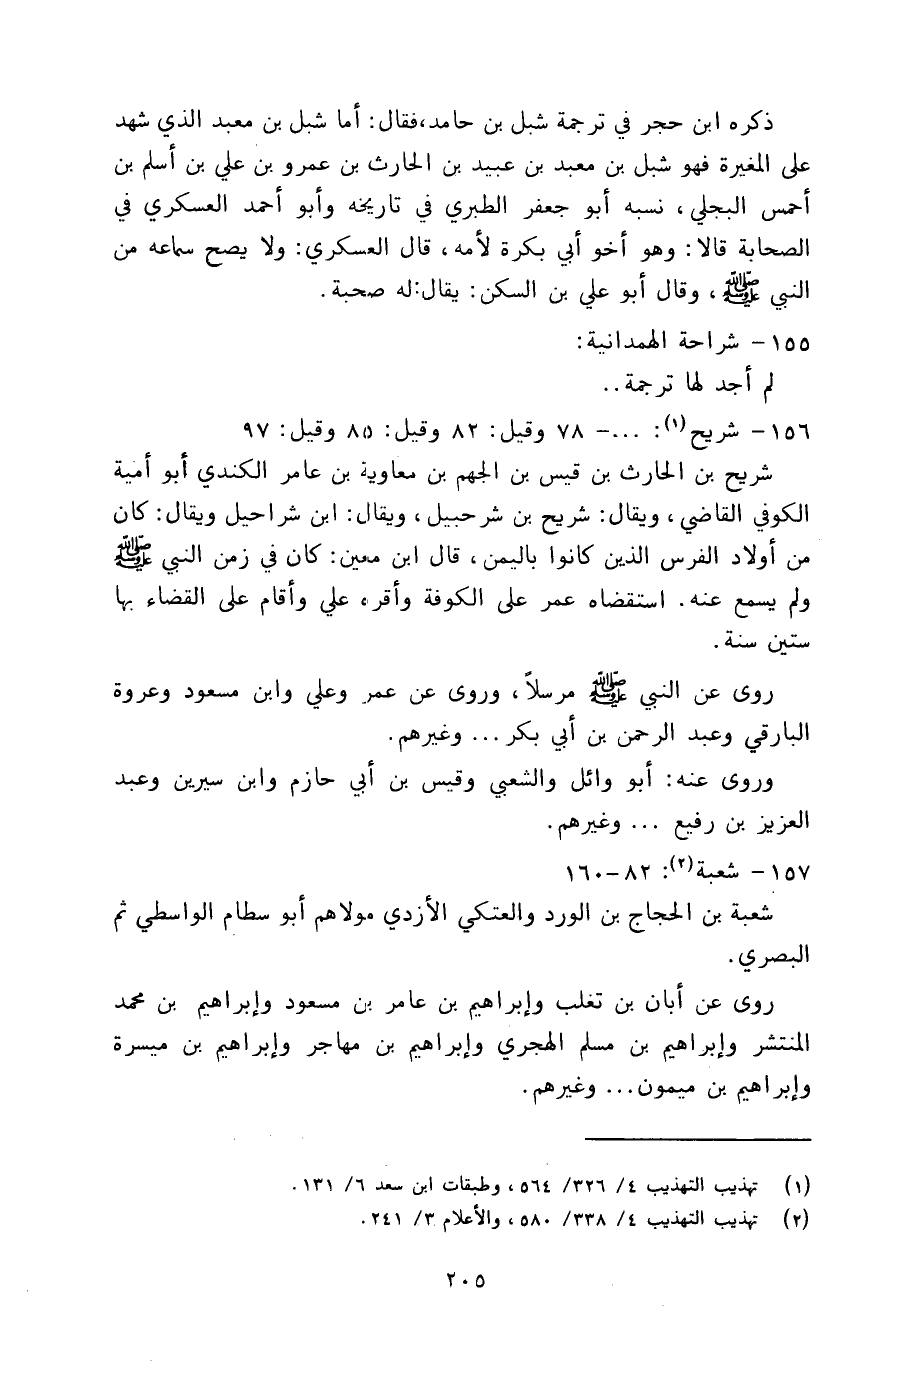 ذكره ابن حجر في ترجمة شبل بن حامد،فقال: أما شبل بن معبد الذي شهد
على المغيرة فهو شبل بن معبد بن عبيد بن الحارث بن عمرو بن علي بن أسلم بن
أحمس البجلي، نسبه أبو جعفر الطبري في تاريخه وأبو أحمد العسكري في
الصحابة قالا: وهو أخو أبي بكرة لأمه، قال العسكري: ولا يصح سماعه من
النبي ﷺ، وقال أبو علي بن السكن: يقال:له صحبة.
١٥٥- شراحة الهمدانية:
لم أجد لها ترجمة..
١٥٦- شريح(١): ...- ٧٨ وقيل: ٨٢ وقيل: ٨٥ وقيل: ٩٧
شريح بن الحارث بن قيس بن الجهم بن معاوية بن عامر الكندي أبو أمية
الكوفي القاضي، ويقال: شريح بن شرحبيل، ويقال: ابن شراحيل ويقال: كان
من أولاد الفرس الذين كانوا باليمن، قال ابن معين: كان في زمن النبي ﷺ
ولم يسمع عنه. استقضاه عمر على الكوفة وأقره علي وأقام على القضاء بها
ستين سنة.
روى عن النبي ﷺ مرسلاً، وروى عن عمر وعلي وابن مسعود وعروة
البارقي وعبد الرحمن بن أبي بكر ... وغيرهم.
وروى عنه: أبو وائل والشعبي وقيس بن أبي حازم وابن سيرين وعبد
العزيز بن رفيع ... وغيرهم.
١٥٧- شعبة(٢): ٨٢-١٦٠
شعبة بن الحجاج بن الورد والعتكي الأزدي مولاهم أبو سطام الواسطي ثم
البصري.
روى عن أبان بن تغلب وإبراهيم بن عامر بن مسعود وإبراهيم بن محمد
المنتشر وإبراهيم بن مسلم الهجري وإبراهيم بن مهاجر وإبراهيم بن ميسرة
وإبراهيم بن ميمون... وغيرهم.
(١) تهذيب التهذيب ٤/ ٣٢٦/ ٥٦٤، وطبقات ابن سعد ٦/ ١٣١.
(٢) تهذيب التهذيب ٤/ ٣٣٨/ ٥٨٠، والأعلام ٣/ ٢٤١.
٢٠٥